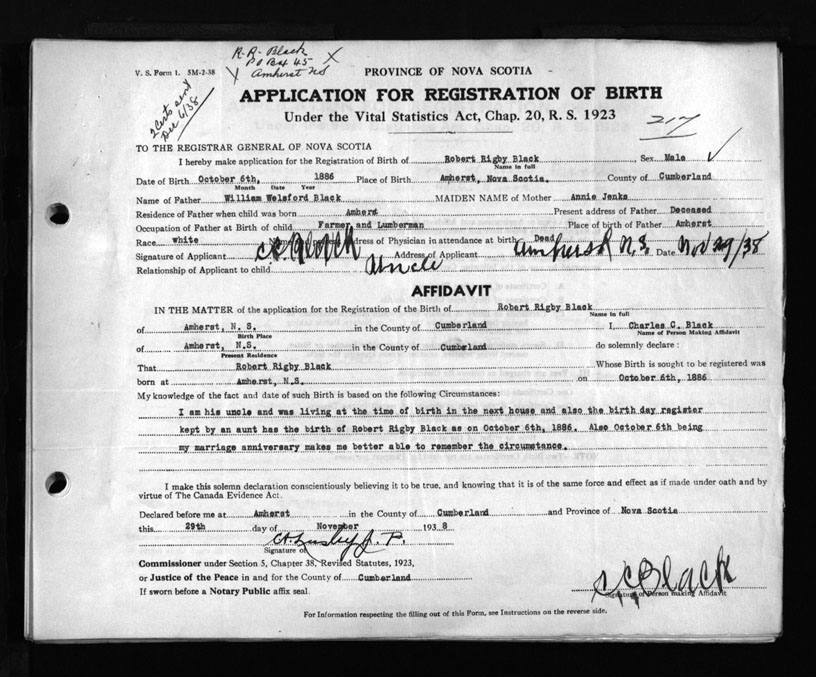 R. R. Black
PO Box 45
Amherst NS
V. S. Form 1. 5M-2-38
PROVINCE OF NOVA SCOTIA
2 Certs sent
Dec 6/38
APPLICATION FOR REGISTRATION OF BIRTH
Under the Vital Statistics Act, Chap. 20, R. S. 1923
217
TO THE REGISTRAR GENERAL OF NOVA SCOTIA
I hereby make application for the Registration of Birth of Robert Rigby Black Sex Male
Name in full
Date of Birth October 6th, 1886 Place of Birth Amherst, Nova Scotia. County of Cumberland
Month Date Year
Name of Father William Welsford Black MAIDEN NAME of Mother Annie Jenks
Residence of Father when child was born Amherst Present address of Father Deceased
Occupation of Father at Birth of child Farmer and Lumberman Place of birth of Father Amherst
Race white Address of Physician in attendance at birth Dead
Signature of Applicant C C Black Address of Applicant Amherst N.S. Date Nov 29/38
Relationship of Applicant to child Uncle
AFFIDAVIT
IN THE MATTER of the application for the Registration of the Birth of Robert Rigby Black
Name in full
of Amherst, N. S. in the County of Cumberland I, Charles C. Black
Birth Place Name of Person Making Affidavit
of Amherst, N.S. in the County of Cumberland do solemnly declare :
Present Residence
That Robert Rigby Black Whose Birth is sought to be registered was
born at Amherst, N.S. on October 6th, 1886
My knowledge of the fact and date of such Birth is based on the following Circumstances:
I am his uncle and was living at the time of birth in the next house and also the birth day register
kept by an aunt has the birth of Robert Rigby Black as on October 6th, 1886. Also October 6th being
my marriage anniversary makes me better able to remember the circumstance.
I make this solemn declaration conscientiously believing it to be true, and knowing that it is of the same force and effect as if made under oath and by
virtue of The Canada Evidence Act.
Declared before me at Amherst in the County of Cumberland and Province of Nova Scotia
this 29th day of November 1938
J. P.
Signature of
Commissioner under Section 5, Chapter 38, Revised Statutes, 1923,
or Justice of the Peace in and for the County of Cumberland
If sworn before a Notary Public affix seal.
C C Black
Signature of Person making Affidavit
For Information respecting the filling out of this Form, see Instructions on the reverse side.